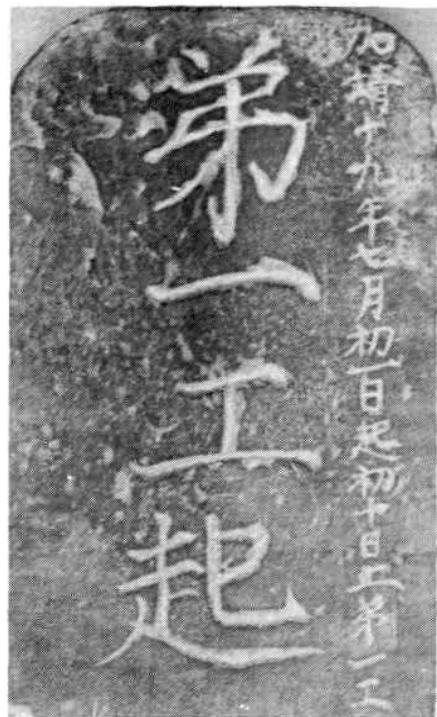 十九年七月初一日起初十日止第一工
第一工起